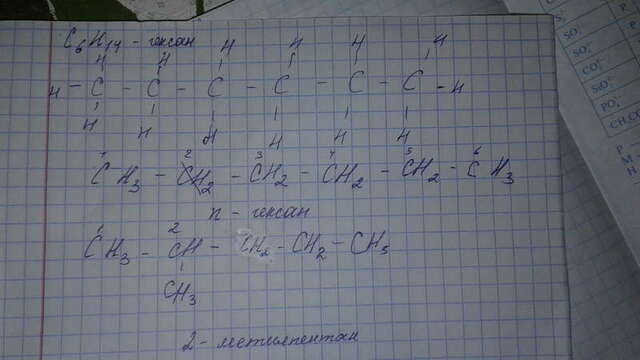 C₆H₁₄ - гексан
H H H H H H
H - C - C - C - C - C - C - H
H H H H H H
1 2 3 4 5 6
CH₃ - CH₂ - CH₂ - CH₂ - CH₂ - CH₃
n - гексан
1 2
CH₃ - CH - CH₂ - CH₂ - CH₃
CH₃
2 - метилпентан
SO
SO
CO
SiO
PO
CH₃CO
Р -
М -
Н -